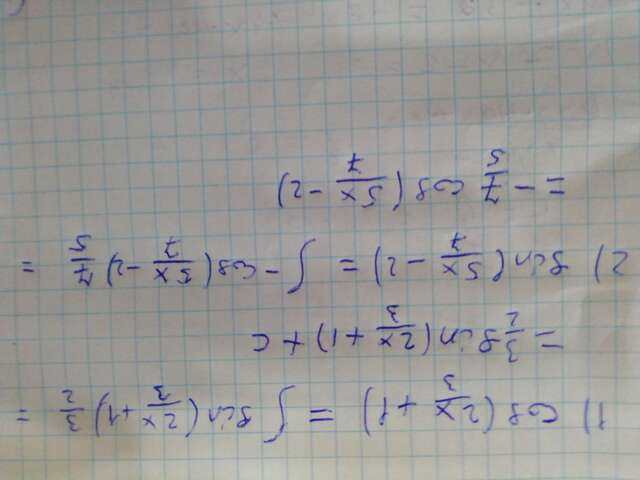 1) cos(2x/3 + 1) = ∫ sin(2x/3 + 1) 3/2 =
= 3/2 sin(2x/3 + 1) + c
2) sin(5x/7 - 2) = ∫ - cos(5x/7 - 2) 7/5 =
= - 7/5 cos(5x/7 - 2)